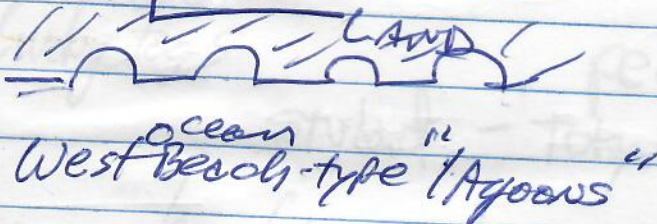 LAND
ocean
West Beach-type "lagoons"